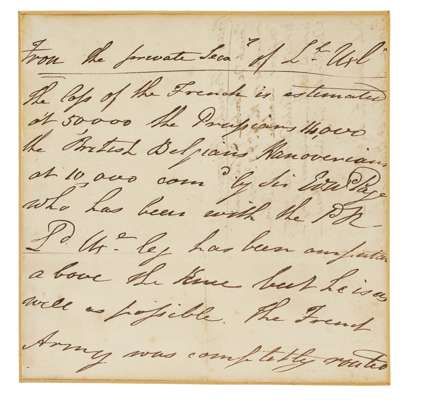 From the private Secy of Ld Uxl
The Loss of the French is estimated
at 50000 the Prussians 14000
the British Belgians Hanoverians
at 10,000 comd by Sir Edwd Page
who has been with the PR
Ld Ux leg has been amputated
above the Knee but he is as
well as possible. The French
Army was completely routed